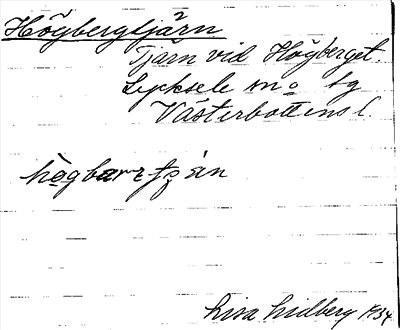 Högbergtjärn 2
Tjärn vid Högberget.
Lycksele sn o sg
Västerbottens l.
högbarrtjän
Lisa Lidberg 1934